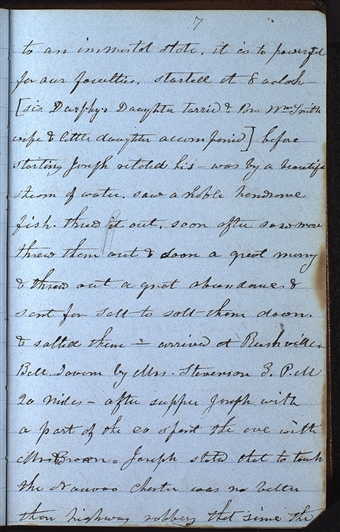 7
to an immortal state, it is to powerful
for our faculties. started at 8 aclock-
[sis Durphy & Daughter tarried & Bro Wm Smith
wife & little daughter accompanied] before
starting Joseph retold his - was by a beautiful
stream of water. saw a noble handsome
fish. threw it out. soon after saw more.
threw them out & soon a great many
& threw out a great abundance. &
sent for salt to salt them down.
& salted them - arrived at Rushville.
Bell Tavern by Mrs. Stevenson 3. P.M
20 miles - after supper Joseph with
a part of the co spent the eve with
Mr Brown. Joseph stated that to take
the Nauvoo Charter was no better
than highway robbery that since the